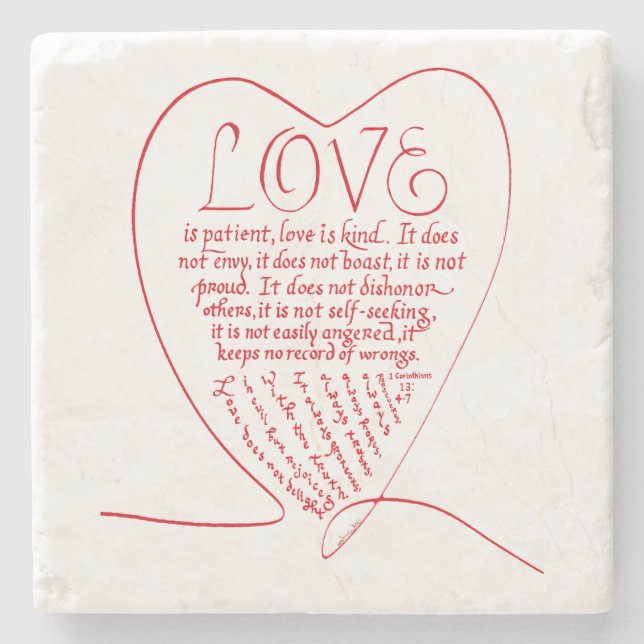 LOVE
is patient, love is kind. It does
not envy, it does not boast, it is not
proud. It does not dishonor
others, it is not self-seeking,
it is not easily angered, it
keeps no record of wrongs.
Love does not delight
in evil but rejoices
with the truth.
It always protects,
always trusts,
always hopes,
always
perseveres.
1 Corinthians
13:
4-7